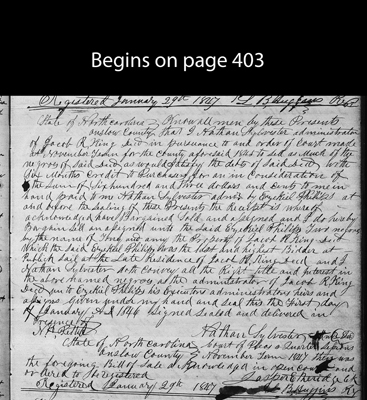 Begins on page 403
Registered January 29th 1847
State of North carolina Know all men by these Presents
onslow County that I Nathan Sylvester administrator
of Jacob R King Decd in pursuance to and order of Court made
at November Term for the County aforesaid 1845 to sell as much of the
negroes of said Decd as would satisfy the debts of said Decd with
Six Months Credit to Purchaser for an in Consideration of
the Sum of Six hundred and three dollars and cents to me in
hand paid to me Nathan Sylvester admr by Ezekiel Philips at
and before the Sealing of these Presents the Receipt is whereof
acknowledged have Bargained Sold and and I do hereby
Bargain Sell an unto the Said Ezekiel Philips Two negroes
by the name of and amy the Property of Jacob R King Decd
Which the Said Ezekiel Philips Was the last and highest Bider at
Publick Sail at the Late Residence of Jacob R King Decd and I
Nathan Sylvester doth Convey all the Right title and interest in
the above named negroes as the administrator of Jacob R King
Decd unto Ezekiel Philips his Executors administrators heirs and
given under my hand and Seal this the First day
of January AD 1846 Signed Sealed and delivered in
Presence
Nathan Sylvester
State of North Carolina Court of Pleas & Quarter Sessions
Onslow County November Term 1847 then was
the foregoing Bill of Sale acknowledged in open Court and
ordered to be registered
Registered January 29th 1847